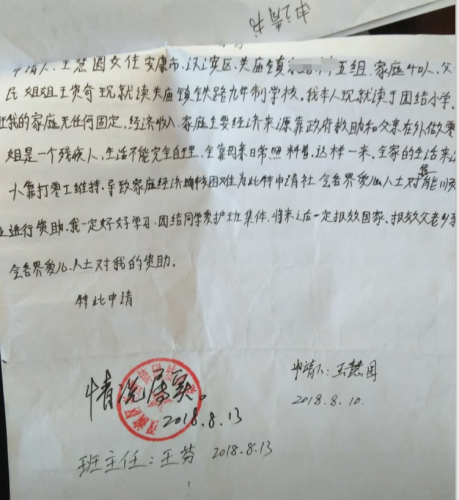 申请书
申请人、王慧园女住安康市、汉滨区、关庙镇 五组、家庭4口人、父
民 姐姐王贵奇现就读关庙镇铁路九年制学校。我本人现就读于团结小学。
我的家庭无任何固定、经济收入、家庭主要经济来源靠政府救助和父亲在外做零
姐是一个残疾人、生活不能完全自理、全靠母亲日常照料着、这样一来。全家的生活来
靠打零工维持、导致家庭经济 困难为此特申请社会各界爱心人士对我能
进行资助、我一定好好学习、团结同学爱护班集体、将来之后一定报效国家、报效父老乡
会各界爱心、人士对我的资助。
特此申请
情况属实。
2018.8.13
申请人:王慧园
2018.8.10.
班主任:王芬 2018.8.13